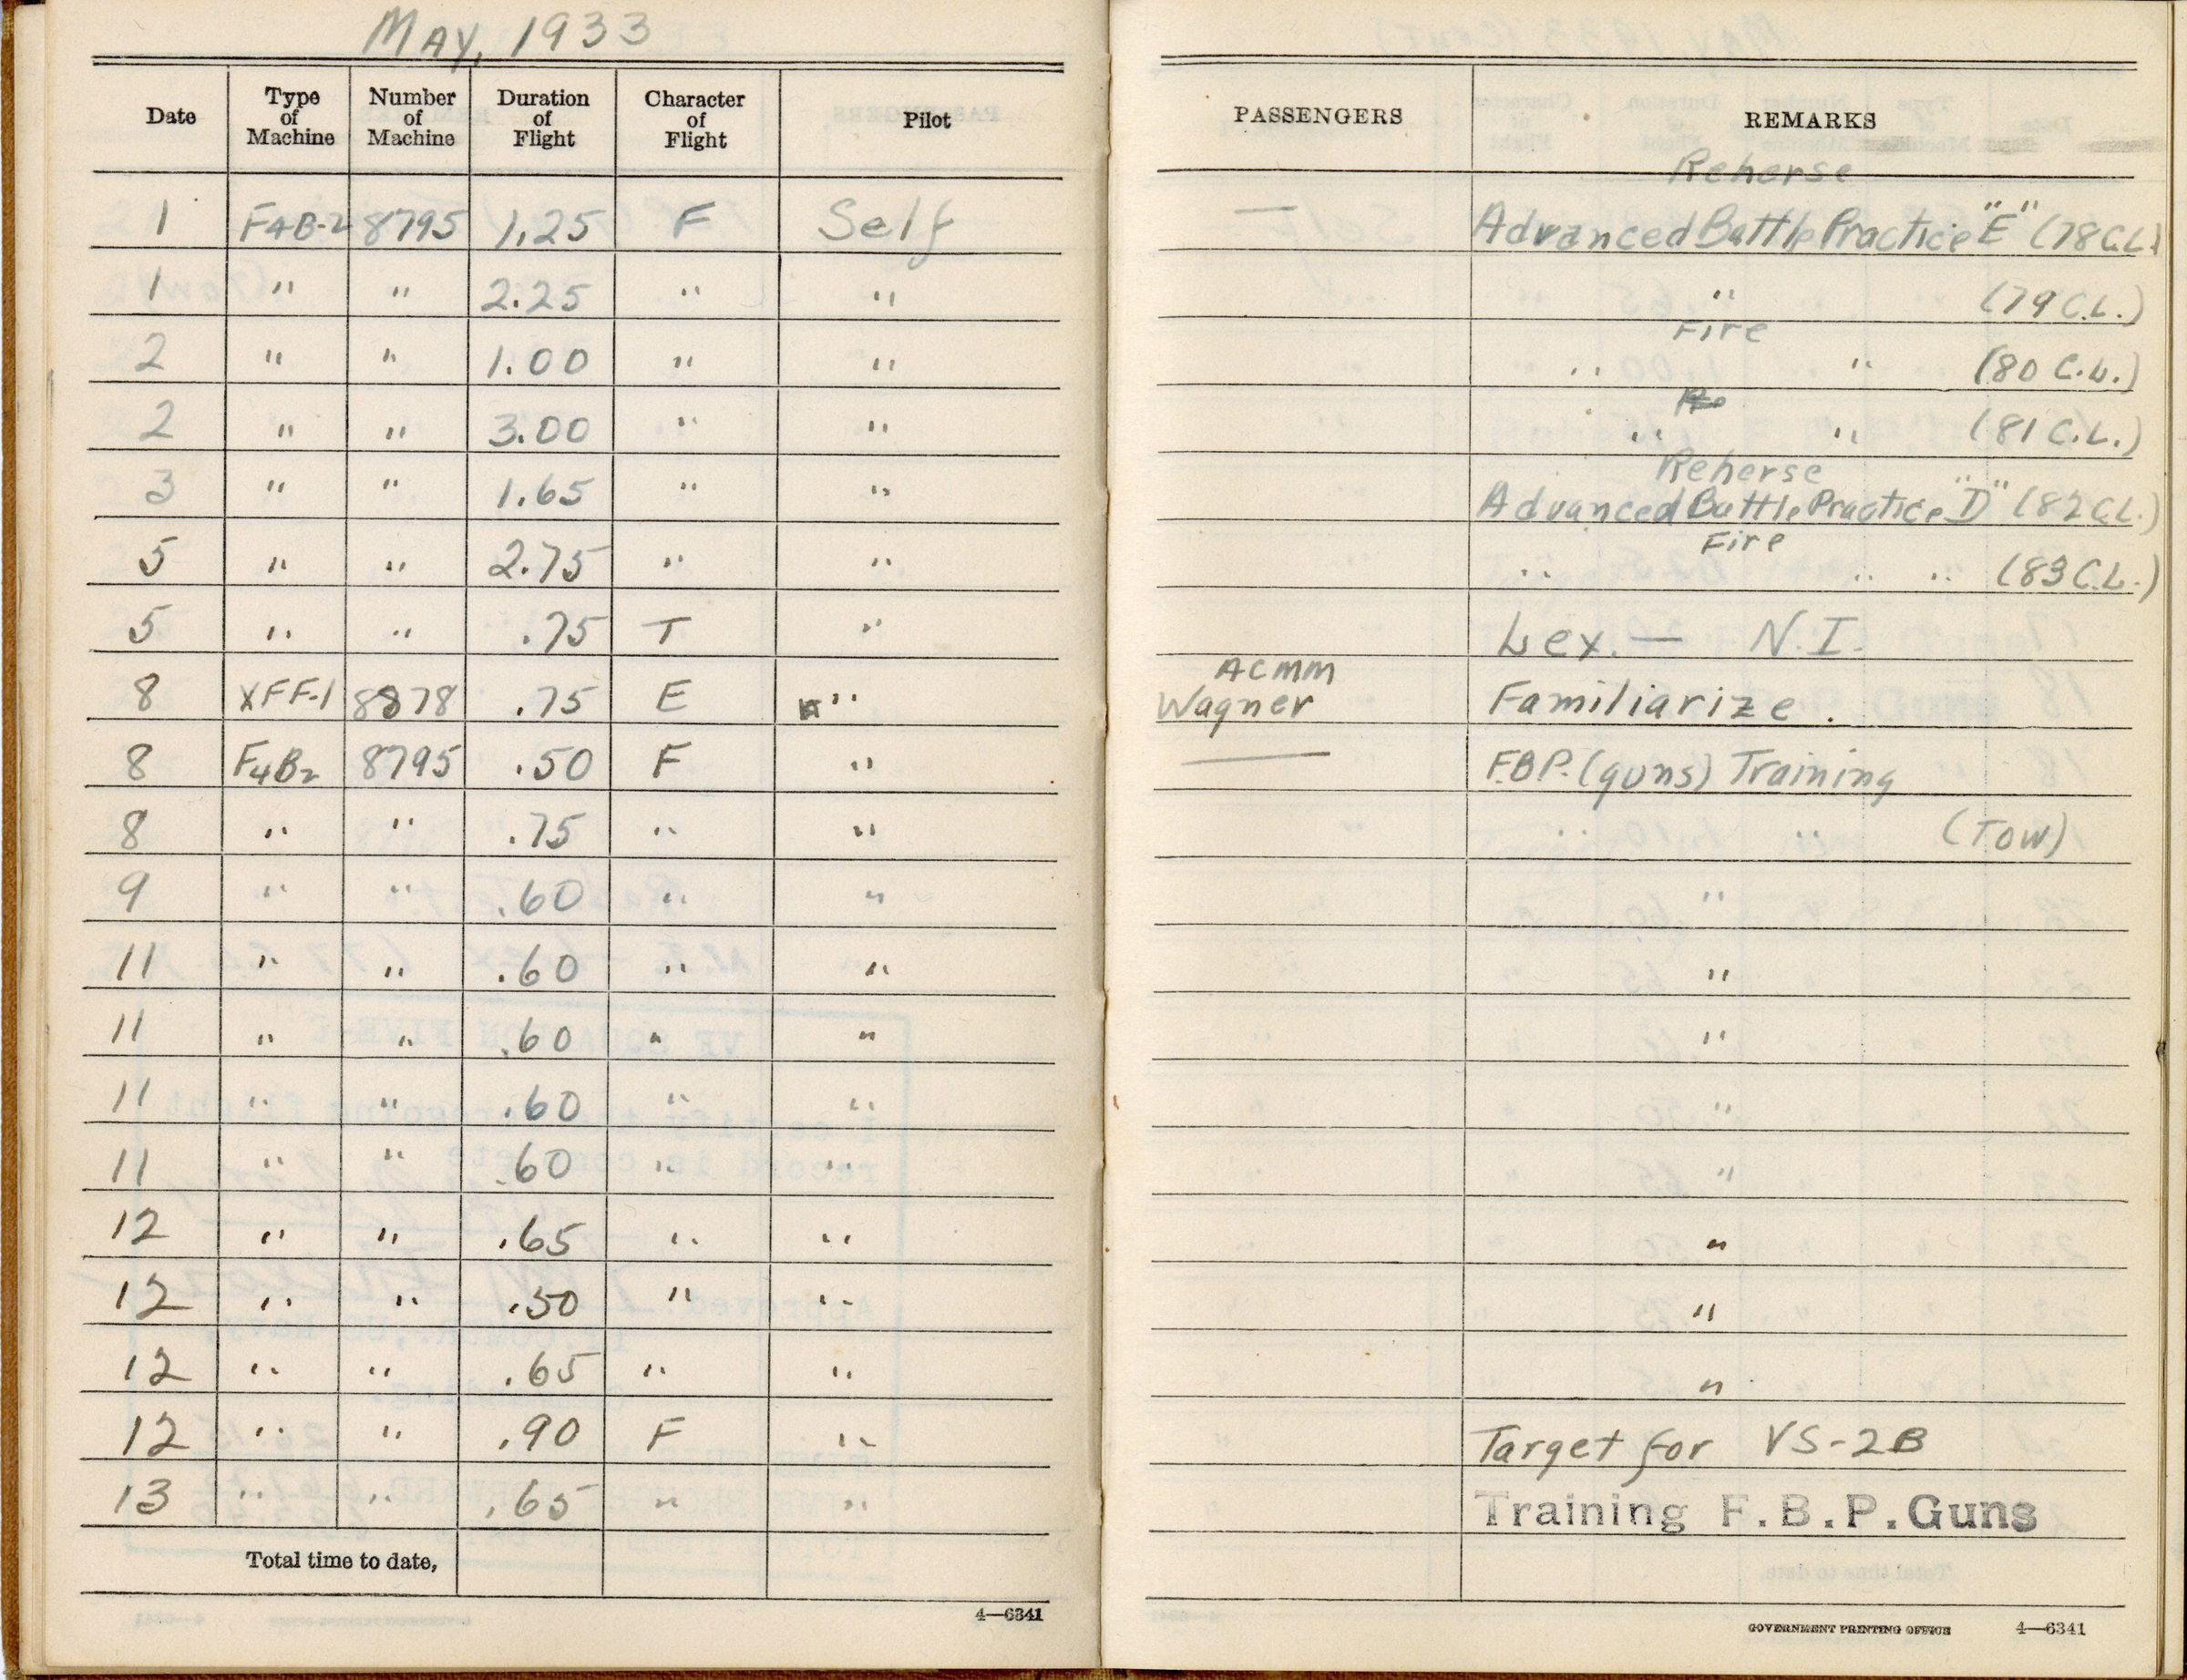 MAY, 1933
Date Type of Machine Number of Machine Duration of Flight Character of Flight Pilot PASSENGERS REMARKS
Reherse
1 F4B-2 8795 1.25 F Self — Advanced Battle Practice "E" (78 C.L.)
1 " " 2.25 " " " (79 C.L.)
Fire
2 " " 1.00 " " " " (80 C.L.)
2 " " 3.00 " " " " (81 C.L.)
Reherse
3 " " 1.65 " " Advanced Battle Practice "D" (82 C.L.)
Fire
5 " " 2.75 " " " " " (83 C.L.)
5 " " .75 T " Lex. — N.I.
ACMM
8 XFF-1 8878 .75 E " Wagner Familiarize.
8 F4B2 8795 .50 F " — F.B.P. (guns) Training
8 " " .75 " " " " (TOW)
9 " " .60 " " "
11 " " .60 " " "
11 " " .60 " " "
11 " " .60 " " "
11 " " .60 " " "
12 " " .65 " " "
12 " " .50 " " "
12 " " .65 " " "
12 " " .90 F " Target for VS-2B
13 " " .65 " " Training F.B.P. Guns
Total time to date,
4—6341
GOVERNMENT PRINTING OFFICE 4—6341